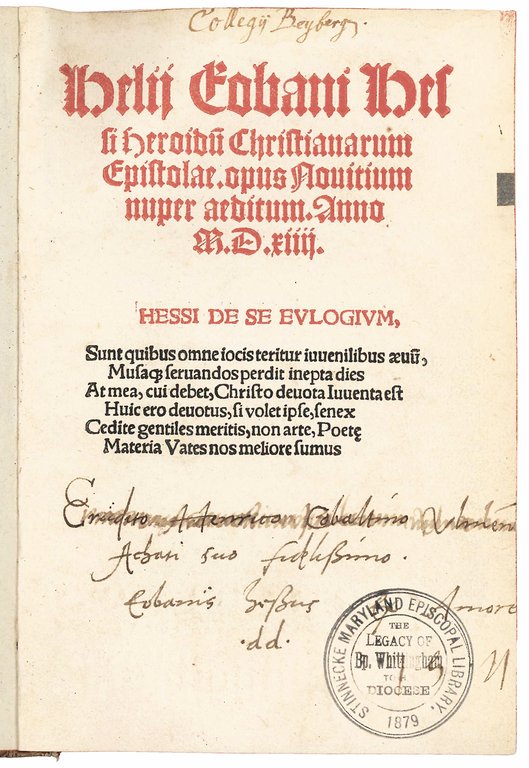 Collegij Beyberg.
Helij Eobani Heſ
ſi Heroidū Chriſtianarum
Epiſtolae. opus Nouitium
nuper aeditum. Anno
M.D.xiiij.
HESSI DE SE EVLOGIVM,
Sunt quibus omne iocis teritur iuuenilibus æuū,
Muſaqꝫ ſeruandos perdit inepta dies
At mea, cui debet, Chriſto deuota Iuuenta eſt
Huic ero deuotus, ſi volet ipſe, ſenex
Cedite gentiles meritis, non arte, Poetę
Materia Vates nos meliore ſumus
Erudito
Achati suo fidelißimo.
Eobanus heßus Amore
.dd.
STINNECKE MARYLAND EPISCOPAL LIBRARY,
THE
LEGACY OF
Bp. Whittingham
TO
DIOCESE
1879